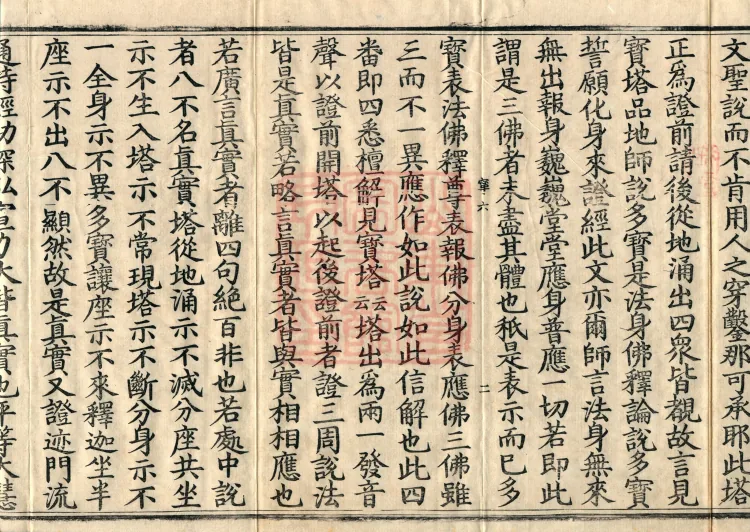 文聖說而不肯用人之穿鑿那可承耶此塔
正爲證前請後從地涌出四衆皆覩故言見
寳塔品地師說多寳是法身佛釋論說多寳
誓願化身來證經此文亦爾師言法身無來
無出報身巍巍堂堂應身普應一切若即此
謂是三佛者未盡其體也秖是表示而已多
寳表法佛釋尊表報佛分身表應佛三佛雖
三而不一異應作如此說如此信解也此四
番即四悉檀解見寳塔云云塔出爲兩一發音
聲以證前開塔以起後證前者證三周說法
皆是眞實若略言眞實者皆與實相相應也
若廣言眞實者離四句絶百非也若處中說
者八不名眞實塔從地涌示不滅分座共坐
示不生入塔示不常現塔示不斷分身示不
一全身示不異多寳讓座示不來釋迦坐半
座示不出八不顯然故是眞實又證迹門流
通持經功深弘宣力大皆眞實也平等大慧
二